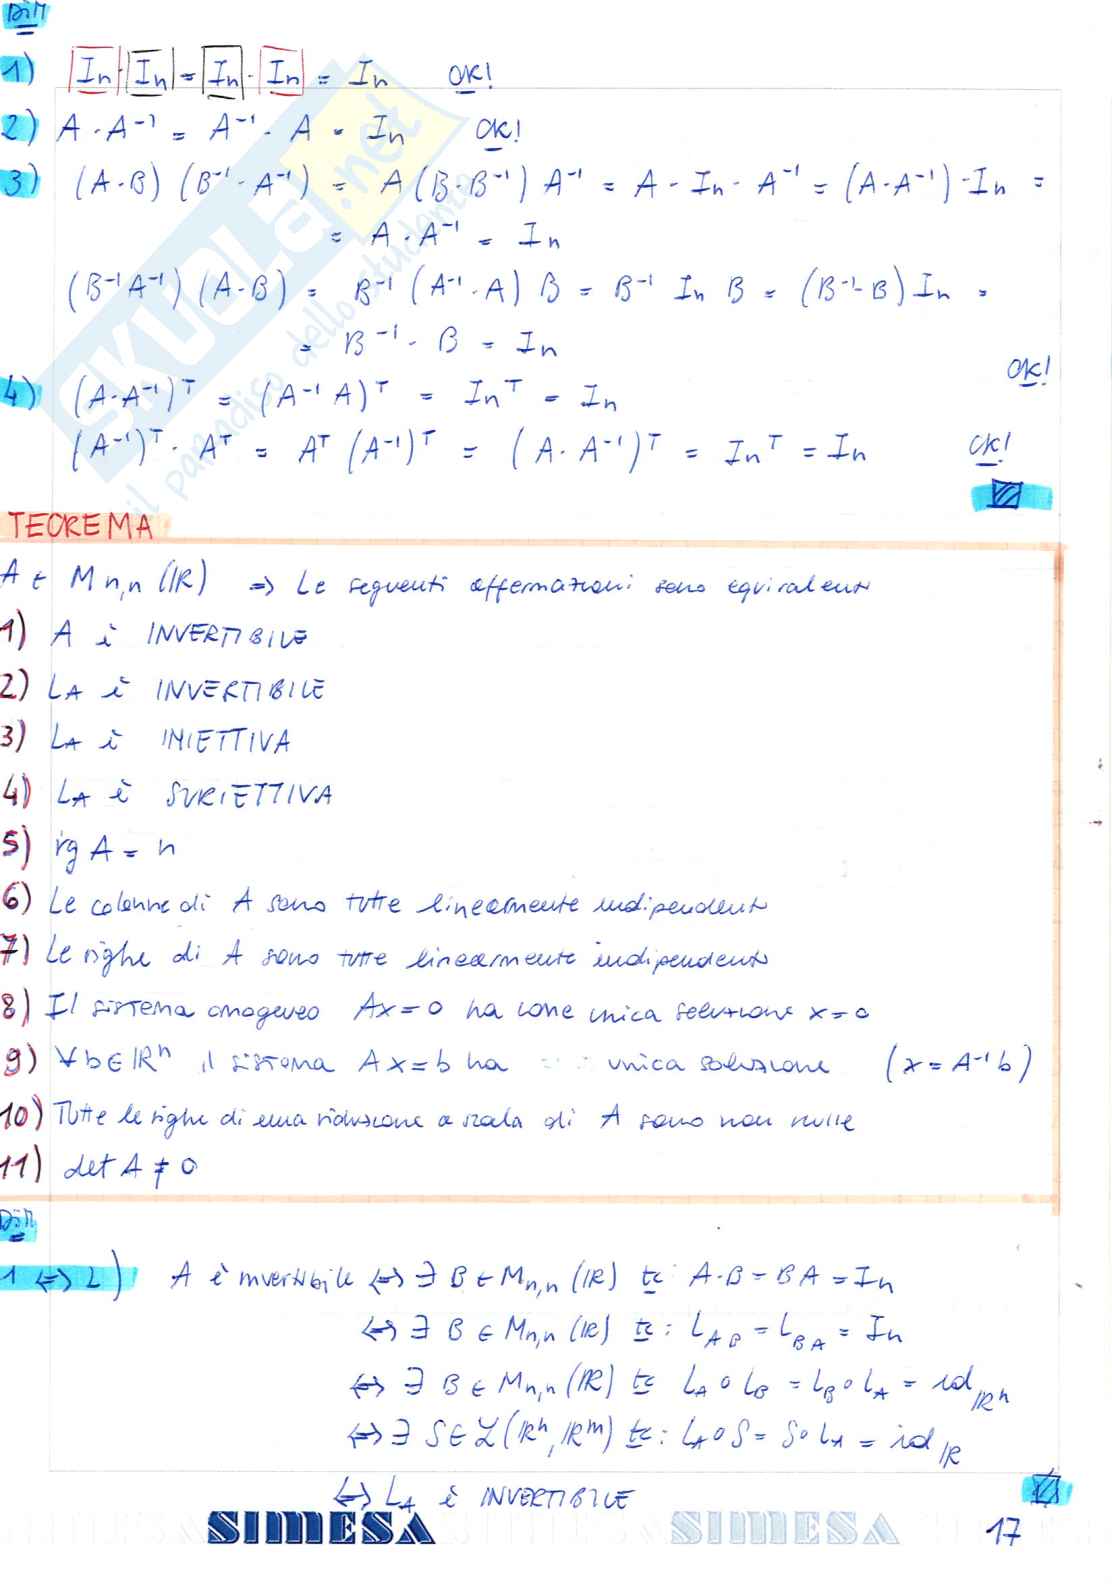 DIM
1) In · In = In · In = In OK!
2) A · A⁻¹ = A⁻¹ · A = In OK!
3) (A·B) (B⁻¹·A⁻¹) = A (B·B⁻¹) A⁻¹ = A · In · A⁻¹ = (A·A⁻¹)·In =
= A·A⁻¹ = In
(B⁻¹A⁻¹) (A·B) = B⁻¹ (A⁻¹·A) B = B⁻¹ In B = (B⁻¹·B) In =
= B⁻¹ · B = In
OK!
4) (A·A⁻¹)ᵀ = (A⁻¹A)ᵀ = Inᵀ = In
(A⁻¹)ᵀ · Aᵀ = Aᵀ (A⁻¹)ᵀ = (A·A⁻¹)ᵀ = Inᵀ = In OK!
SKUOLA.net
il paradiso dello studente
TEOREMA
A ∈ M n,n (IR) => Le seguenti affermazioni sono equivalenti
1) A è INVERTIBILE
2) LA è INVERTIBILE
3) LA è INIETTIVA
4) LA è SURIETTIVA
5) rg A = n
6) Le colonne di A sono tutte linearmente indipendenti
7) Le righe di A sono tutte linearmente indipendenti
8) Il sistema omogeneo Ax=0 ha come unica soluzione x=0
9) ∀b∈IRⁿ il sistema Ax=b ha unica soluzione (x=A⁻¹b)
10) Tutte le righe di una riduzione a scala di A sono non nulle
11) det A ≠ 0
DIM
1 <=> 2) A è invertibile <=> ∃ B ∈ Mn,n (IR) tc: A·B = BA = In
<=> ∃ B ∈ Mn,n (IR) tc: LAB = LBA = In
<=> ∃ B ∈ Mn,n (IR) tc LA∘LB = LB∘LA = id IRⁿ
<=> ∃ S ∈ L(IRⁿ, IRᵐ) tc: LA∘S = S∘LA = id IR
<=> LA è INVERTIBILE
SIMESA SIMESA
17